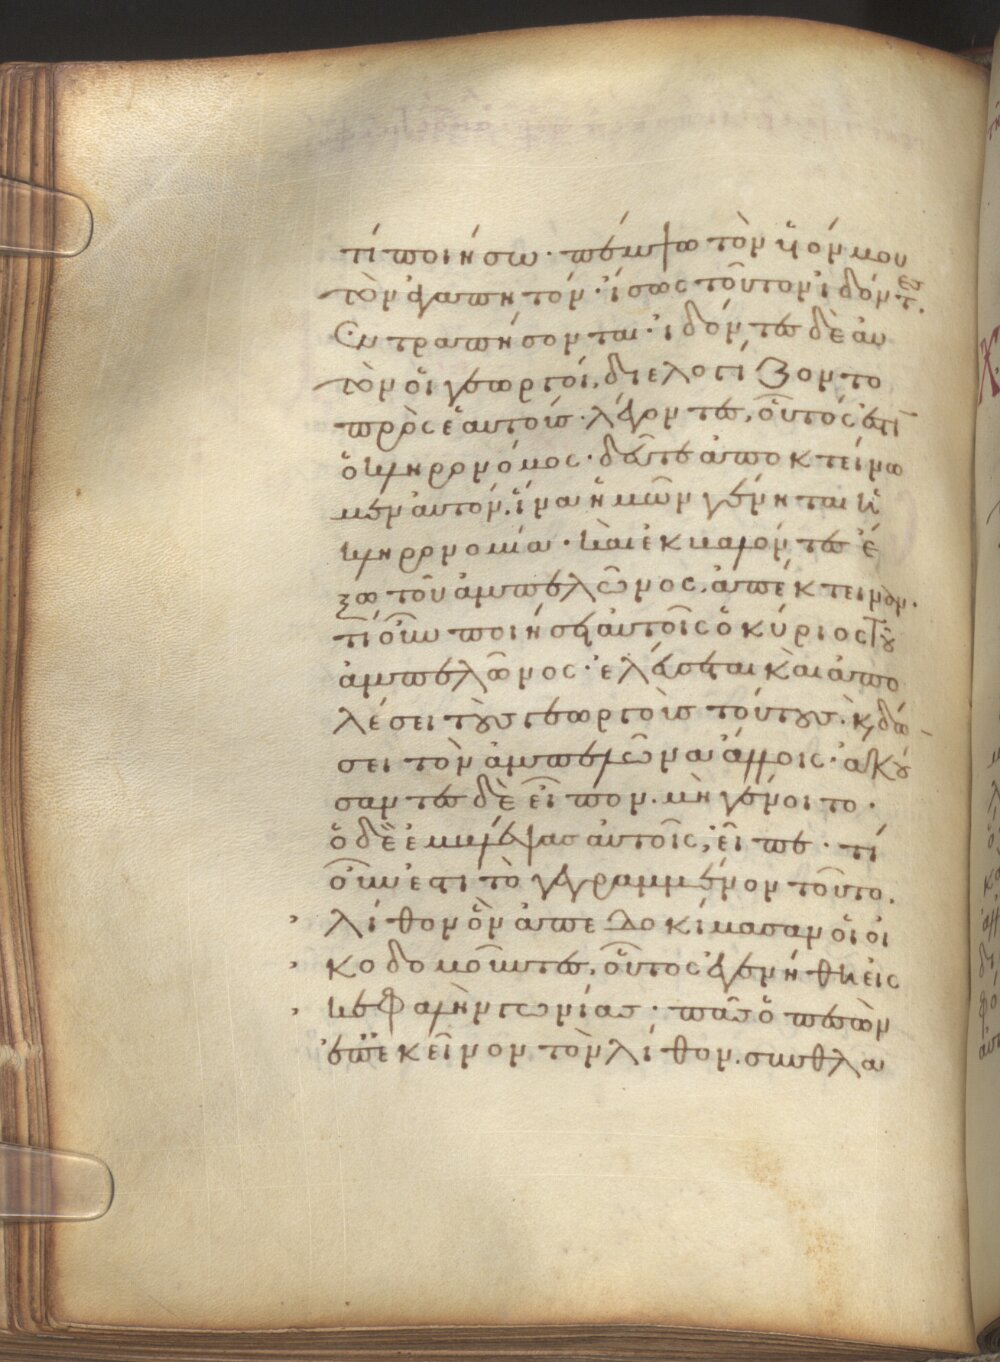 τί ποιήσω· πέμψω τὸν ὑϊόν μου
τὸν ἀγαπητόν· ἴσως τοῦτον ἰδόντες
ἐντραπήσονται· ἰδόντες δὲ αὐ
τὸν οἱ γεωργοί, διελογίζοντο
πρὸς ἑαυτοὺς λέγοντες, οὗτός ἐστιν
ὁ κληρονόμος· δεῦτε ἀποκτείνω
μεν αὐτόν, ἵνα ἡμῶν γένηται ἡ
κληρονομία· καὶ ἐκβαλόντες ἔ
ξω τοῦ ἀμπελῶνος, ἀπέκτειναν·
τί οὖν ποιήσει αὐτοῖς ὁ κύριος τοῦ
ἀμπελῶνος· ἐλεύσεται καὶ ἀπο
λέσει τοὺς γεωργοὺς τούτους· καὶ δώ
σει τὸν ἀμπελῶνα ἄλλοις· ἀκού
σαντες δὲ εἶπον· μὴ γένοιτο·
ὁ δὲ ἐμβλέψας αὐτοῖς, εἶπε· τί
οὖν ἐστι τὸ γεγραμμένον τοῦτο.
λίθον ὃν ἀπεδοκίμασαν οἱ οἰ
κοδομοῦντες, οὗτος ἐγενήθη εἰς
κεφαλὴν γωνίας· πᾶς ὁ πεσὼν
ἐπ' ἐκεῖνον τὸν λίθον· συνθλα